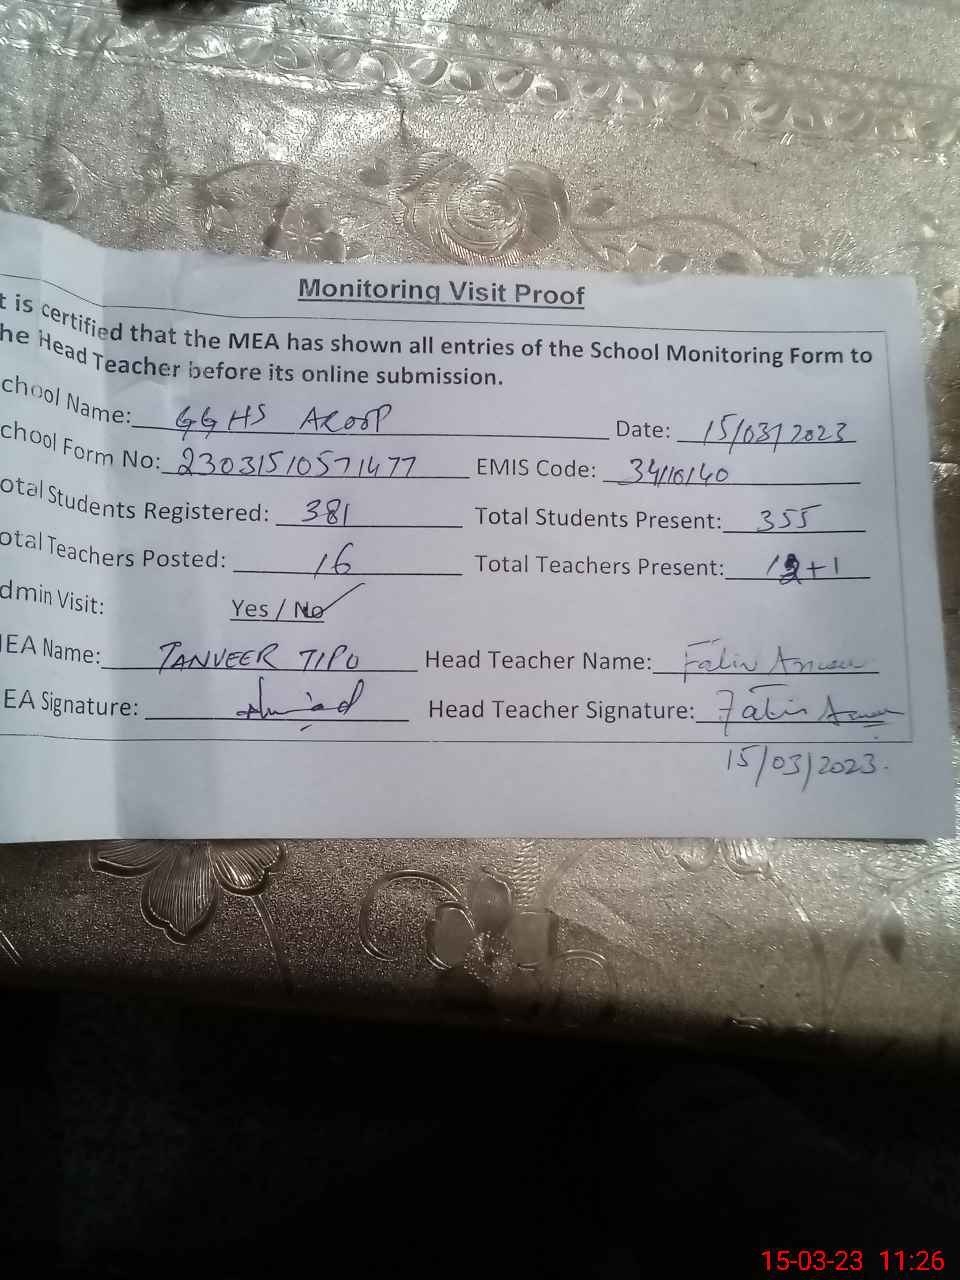 Monitoring Visit Proof
t is certified that the MEA has shown all entries of the School Monitoring Form to
he Head Teacher before its online submission.
chool Name: GGHS AROOP Date: 15/03/2023
chool Form No: 23031510571477 EMIS Code: 34110140
otal Students Registered: 381 Total Students Present: 355
otal Teachers Posted: 16 Total Teachers Present: 12+1
dmin Visit: Yes / No
EA Name: TANVEER TIPU Head Teacher Name:
EA Signature: Head Teacher Signature:
15/03/2023.
15-03-23 11:26